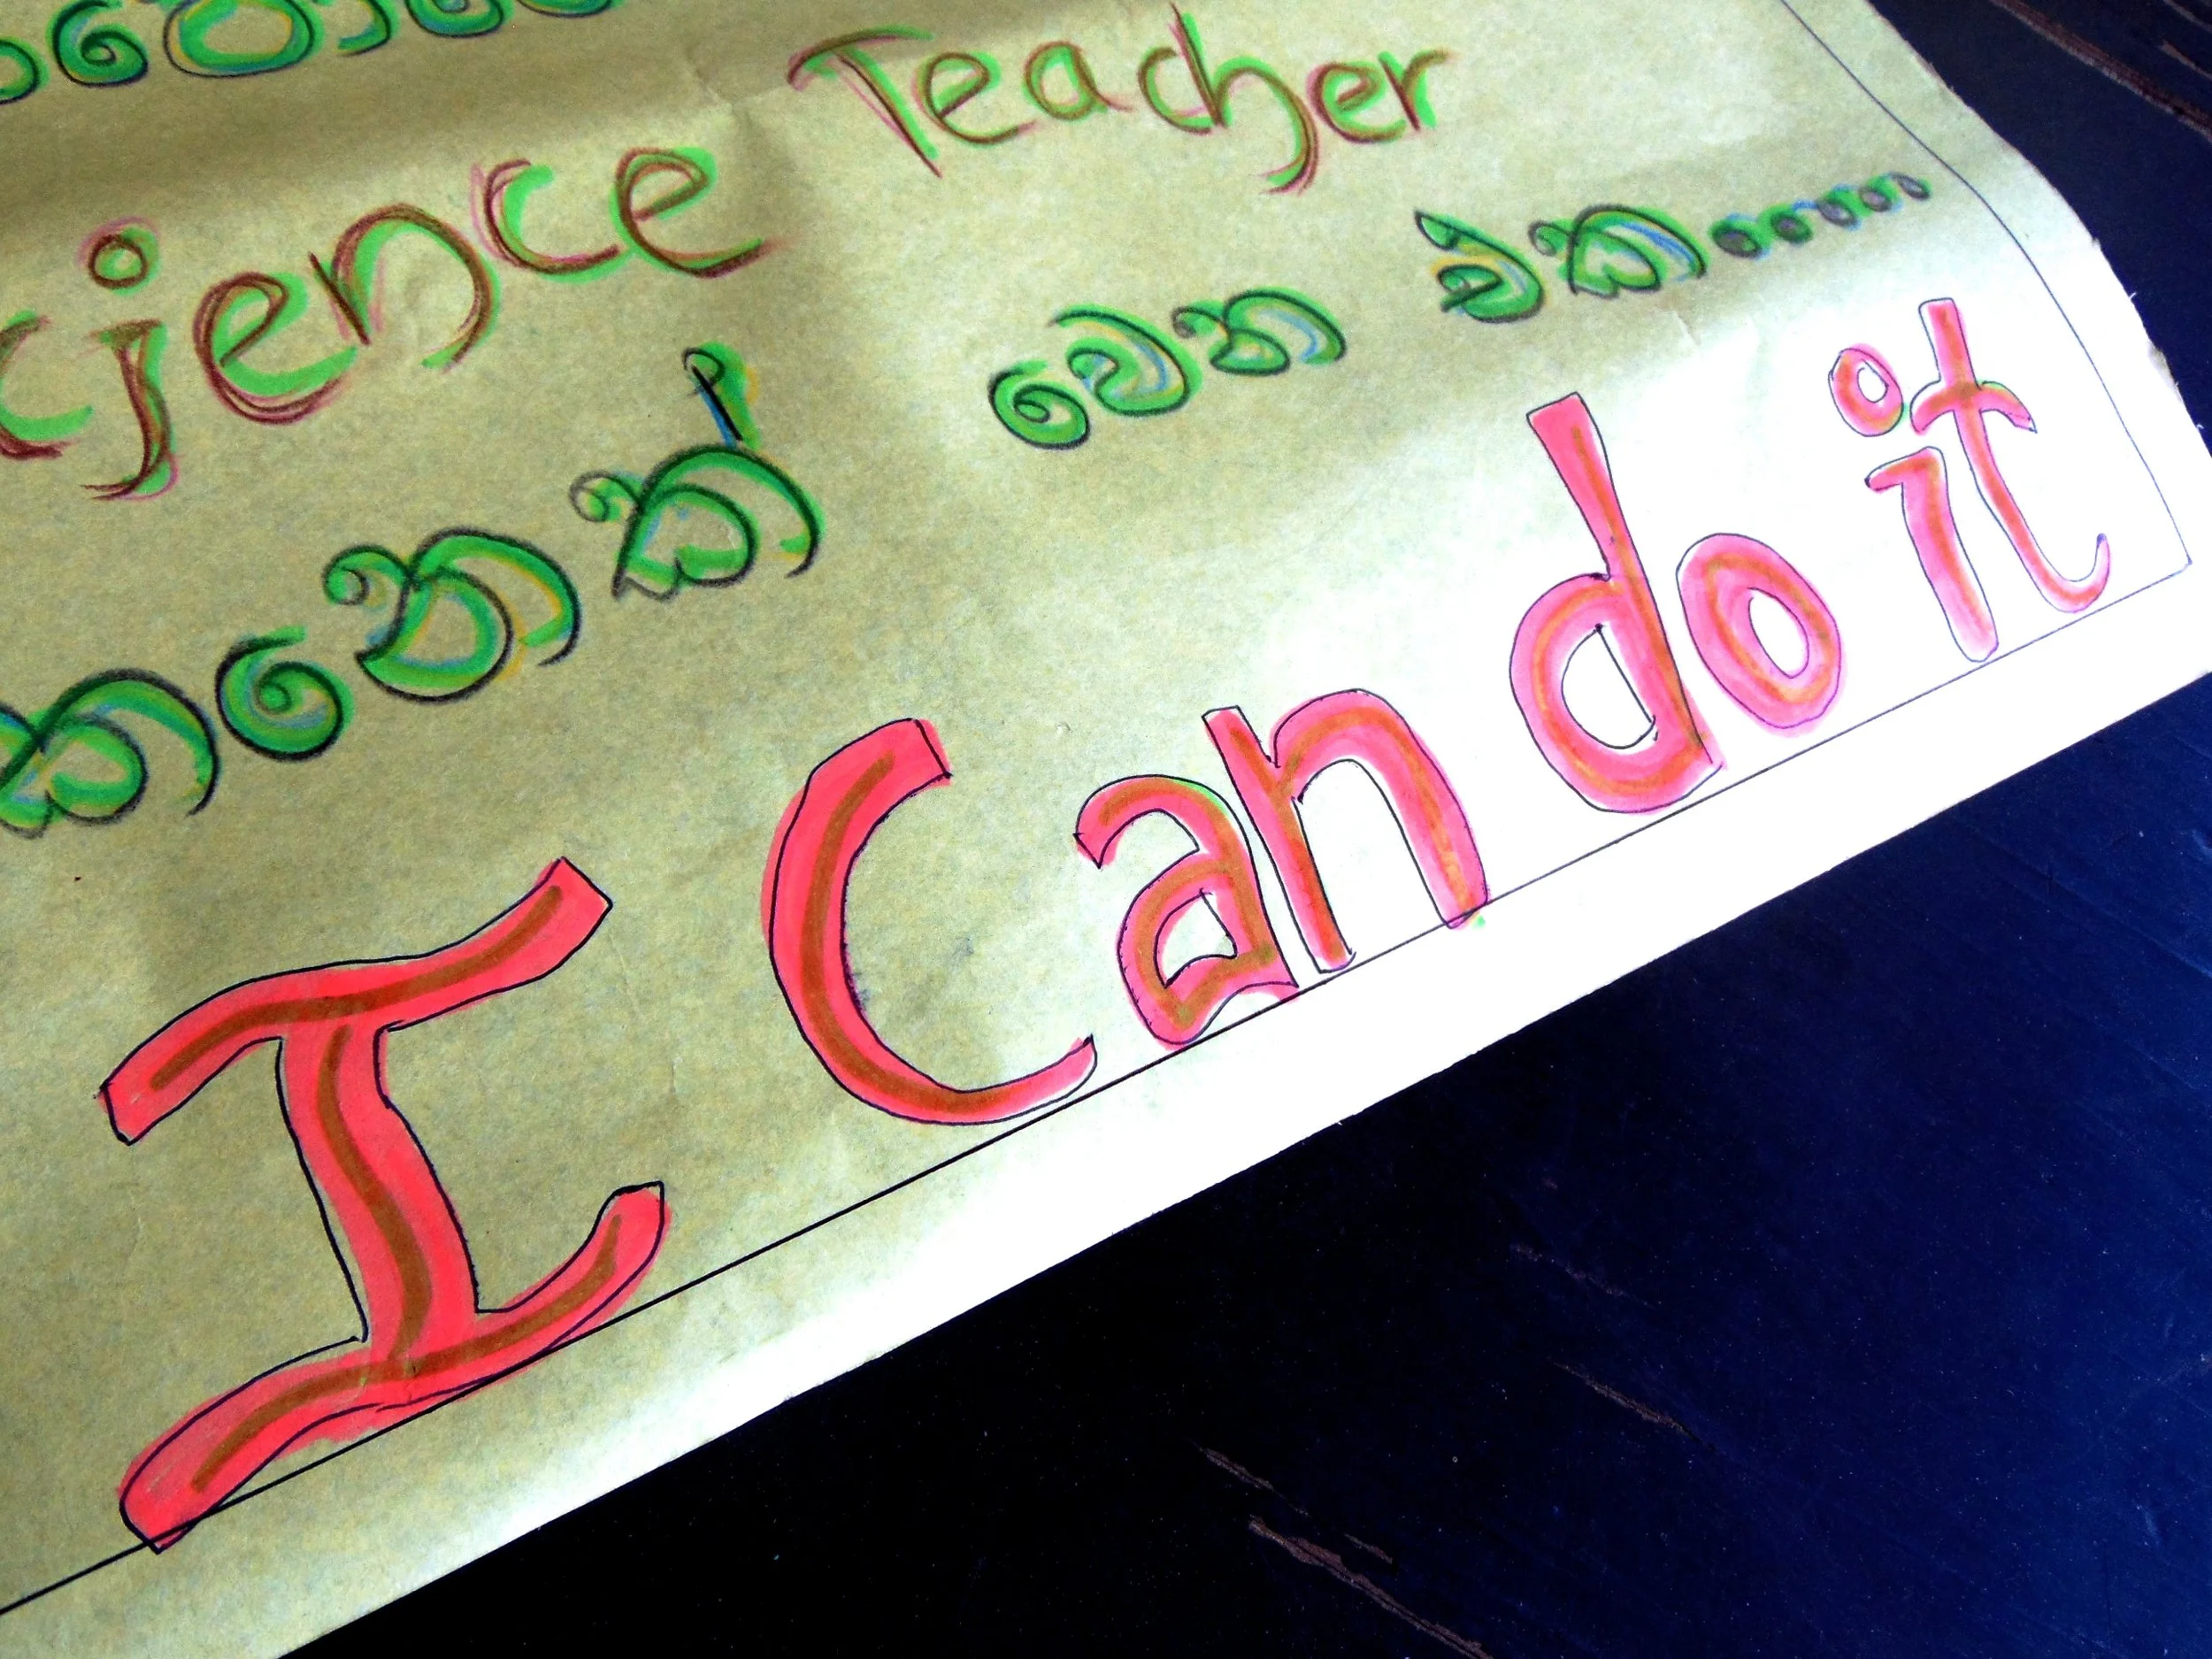 cience Teacher
කනෙක් වෙන එක.....
I Can do it